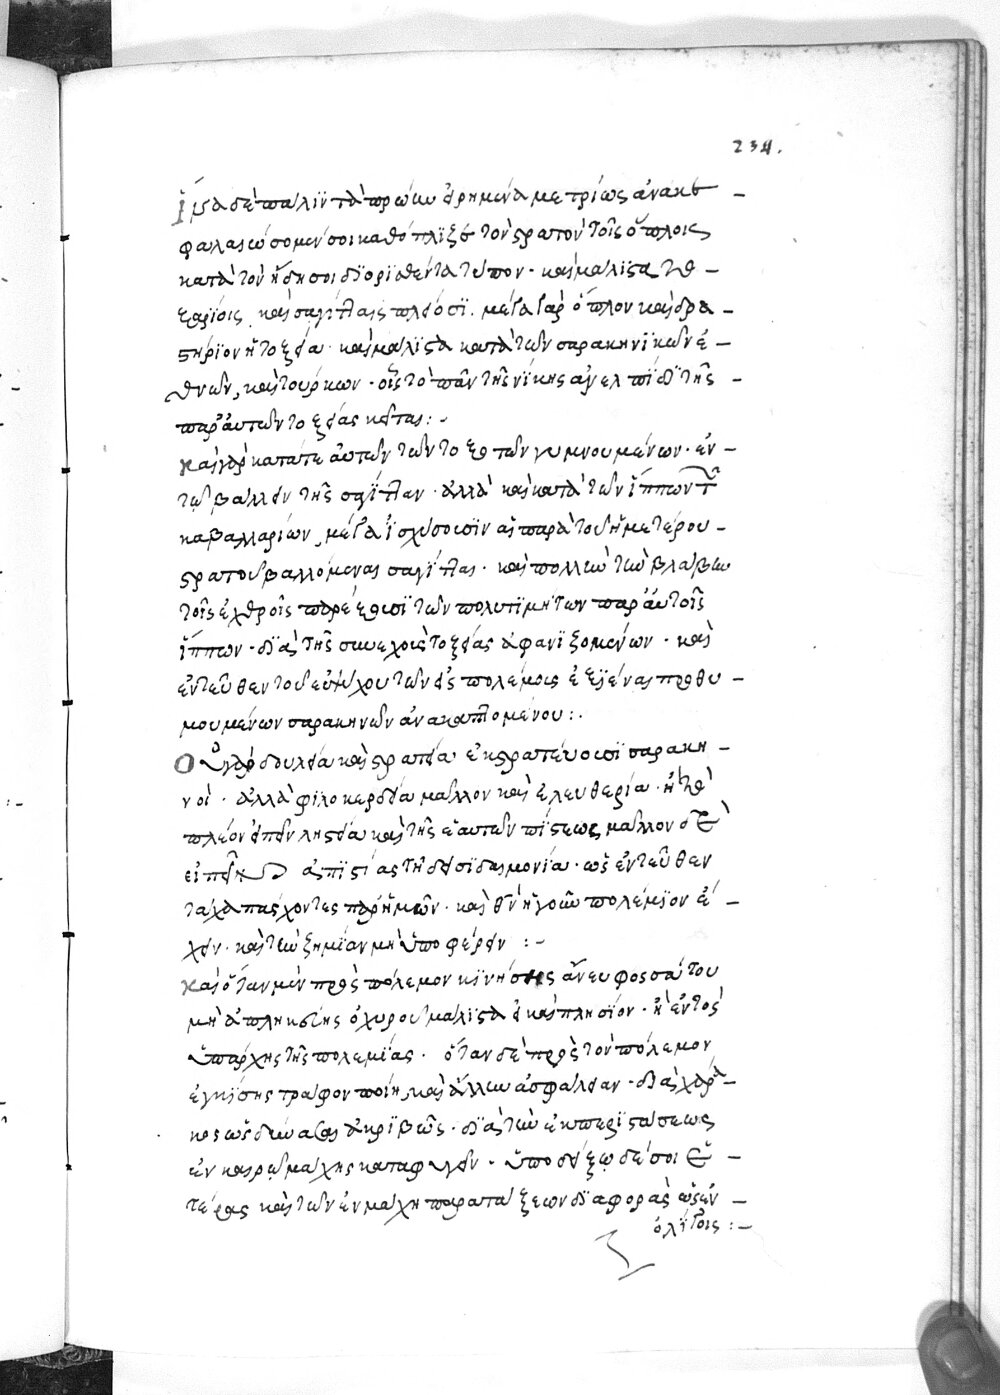 234.
Ἵνα δὲ πάλιν τὰ πρώην εἰρημένα μετρίως ἀνακε
φαλαιώσομεν σοι καθόπλιζε τὸν στρατὸν τοῖς ὅπλοις
κατὰ τὸν ἤδη σοι διορισθέντα τύπον· καὶ μάλιστα το
ξαρίοις καὶ σαγίτταις πλείοσι. μέγα γὰρ ὅπλον καὶ δρα
στήριον ἡ τοξεία· καὶ μάλιστα κατὰ τῶν σαρακηνικῶν ἐ
θνῶν, καὶ τούρκων· οἷς τὸ πᾶν τῆς νίκης ἀνελπίδι τῆς
παρ' αὐτῶν τοξείας κεῖται:
καὶ γὰρ κατάτε αὐτῶν τῶν τοξοτῶν γυμνουμένων· ἐν
τῷ βάλλειν τῆς σαγίτταν· ἀλλὰ καὶ κατὰ τῶν ἵππων τῶν
καβαλλαρίων, μέγα ἰσχύσουσιν αἱ παρὰ τοῦ ἡμετέρου
στρατοῦ βαλλόμεναι σαγίτται· καὶ πολλὴν τὴν βλάβην
τοῖς ἐχθροῖς παρέξουσι τῶν πολυτιμήτων παρ' αὐτοῖς
ἵππων· διὰ τῆς συνεχοῦς τοξείας ἀφανιζομένων· καὶ
ἐντεῦθεν τοῦ εὐψύχου τῶν εἰς πολέμοις ἐξιέναι προθυ
μουμένων σαρακηνῶν ἀνακαπτομένου:
Οὐ γὰρ δουλεία καὶ στρατεία ἐκστρατεύουσι σαρακη
νοί· ἀλλὰ φιλοκερδεία μᾶλλον καὶ ἐλευθερία· ἢ τὸ
πλέον εἰπεῖν λῃστεία καὶ τῆς ἑαυτῶν πίστεως μᾶλλον δὲ
εἰπεῖν ἀπιστίας τῇ δεισιδαιμονία· ὡς ἐντεῦθεν
τάχα πάσχοντες παρ' ἡμῶν· καὶ θν ἡγοῦν πολέμιον ἔ
χειν· καὶ τὴν ζημίαν μὴ ὑποφέρειν :
καὶ ὅταν μὲν πρὸς πόλεμον κινήσεις ἄνευ φοσσάτου
μὴ ἀπληκεύης ὀχυροῦ μάλιστα εἰ καὶ πλησίον· ἢ ἐντὸς
ὑπάρχης τῆς πολεμίας· ὅταν δὲ πρὸς τὸν πόλεμον
ἐγγίσης τράφον ποίη, καὶ ἄλλην ἀσφάλειαν· διὰ χάρα
κος ὡς δύνασαι ἀκριβῶς· διὰ τὴν ἐκ περιστάσεως
ἐν καιρῷ μάχης καταφυγήν· ὑποδείξω δέ σοι ἑ
τέρας καὶ τῶν ἐν μάχη παρατάξεων διαφορὰς ὡς ἐν
ὀλίγοις: